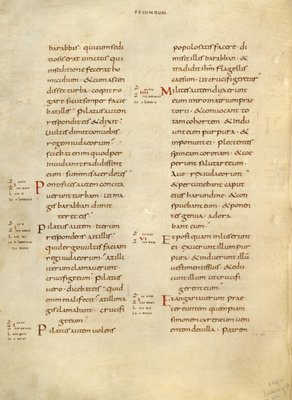 SECUNDUM
barabbas · quicumsedi
tiosis erat uinctus · qui
inseditione fecerat ho
micidium · & cum ascen
disset turba · coepit ro
gare sic ut semper facie
bat illis · Pilatus autem
respondit eis & dixit ·
Uultis dimittam uobis
regem iudaeorum ·
sciebat enim quod per
inuidiam tradidissent
eum · summi sacerdotes ·
Pontifices autem concita
uerunt turbam · ut ma
gis barabban dimit
teret eis ·
Pilatus autem · iterum
respondens ait illis ·
quid ergo uultis faciam
regi iudaeorum · at illi
iterum clamauerunt ·
crucifige eum · Pilatus
uero · dicebat eis · quid
enim mali fecit · at illi ma
gis clamabant · crucifi
ge eum ·
Pilatus autem uolens
populo satis facere · di
misit illis barabban · &
tradidit ihm flagellis
caesum · ut crucifigeretur ·
Milites autem duxerunt
eum intro in atrium prae
torii · & conuocant to
tam cohortem · & indu
unt eum purpura · &
inponunt ei · plectentes
spineam coronam · & coe
perunt salutare eum ·
Aue · rex iudaeorum ·
& percutiebant caput
eius harundine · & con
spuebant eum · & ponen
tes genua · adora
bant eum ·
Et postquam inluserunt
ei · exuerunt illum purpu
ra · & induerunt illum
uestimentis suis · & educ
unt illum ut crucifi
gerent eum ·
Et angariauerunt prae
tereuntem quempiam
simonem cyreneum ueni
entem de uilla · patrem